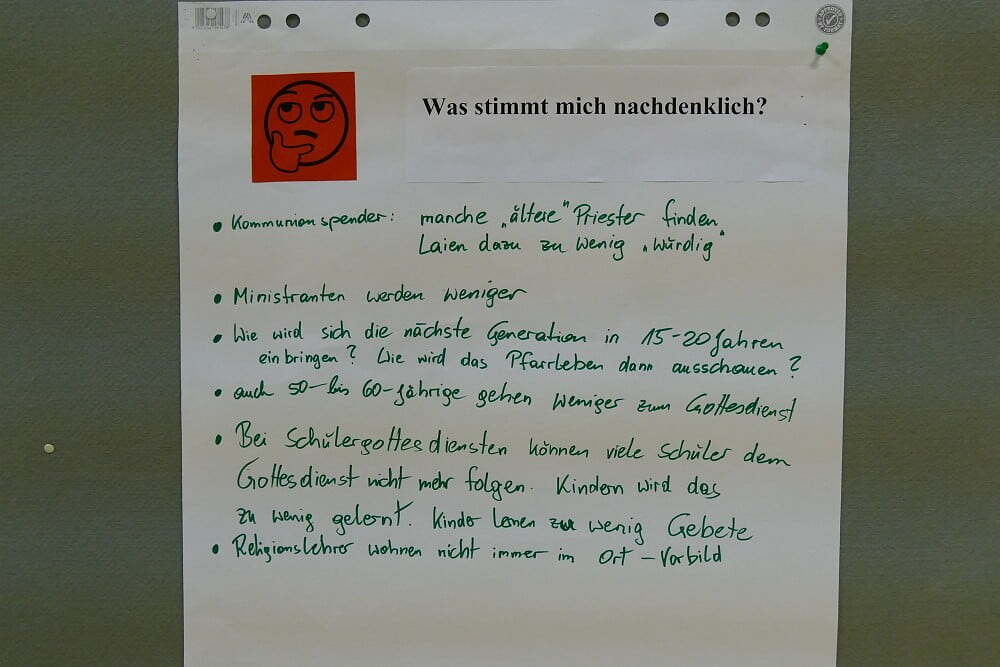 Was stimmt mich nachdenklich?
• Kommunionspender: manche „ältere" Priester finden
Laien dazu zu wenig „würdig"
• Ministranten werden weniger
• Wie wird sich die nächste Generation in 15-20 Jahren
einbringen? Wie wird das Pfarrleben dann ausschauen?
• auch 50- bis 60-jährige gehen weniger zum Gottesdienst
• Bei Schülergottesdiensten können viele Schüler dem
Gottesdienst nicht mehr folgen. Kindern wird das
zu wenig gelernt. Kinder lernen zu wenig Gebete
• Religionslehrer wohnen nicht immer im Ort – Vorbild